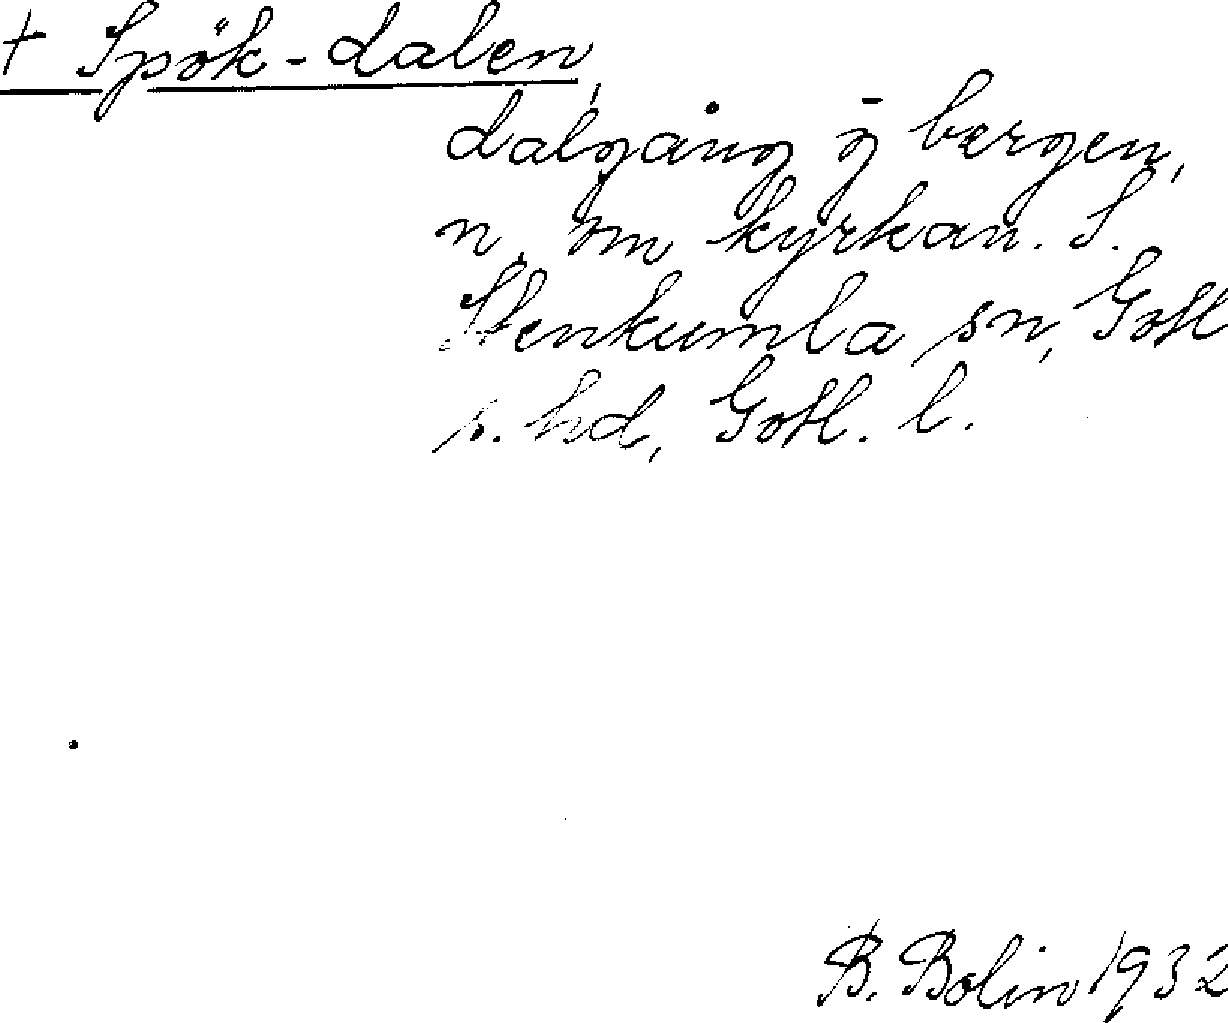 † Spök-dalen,
dalgång i bergen,
n. om kyrkan. S.
Stenkumla sn, Gotl
s. hd, Gotl. l.
B. Bolin 1932